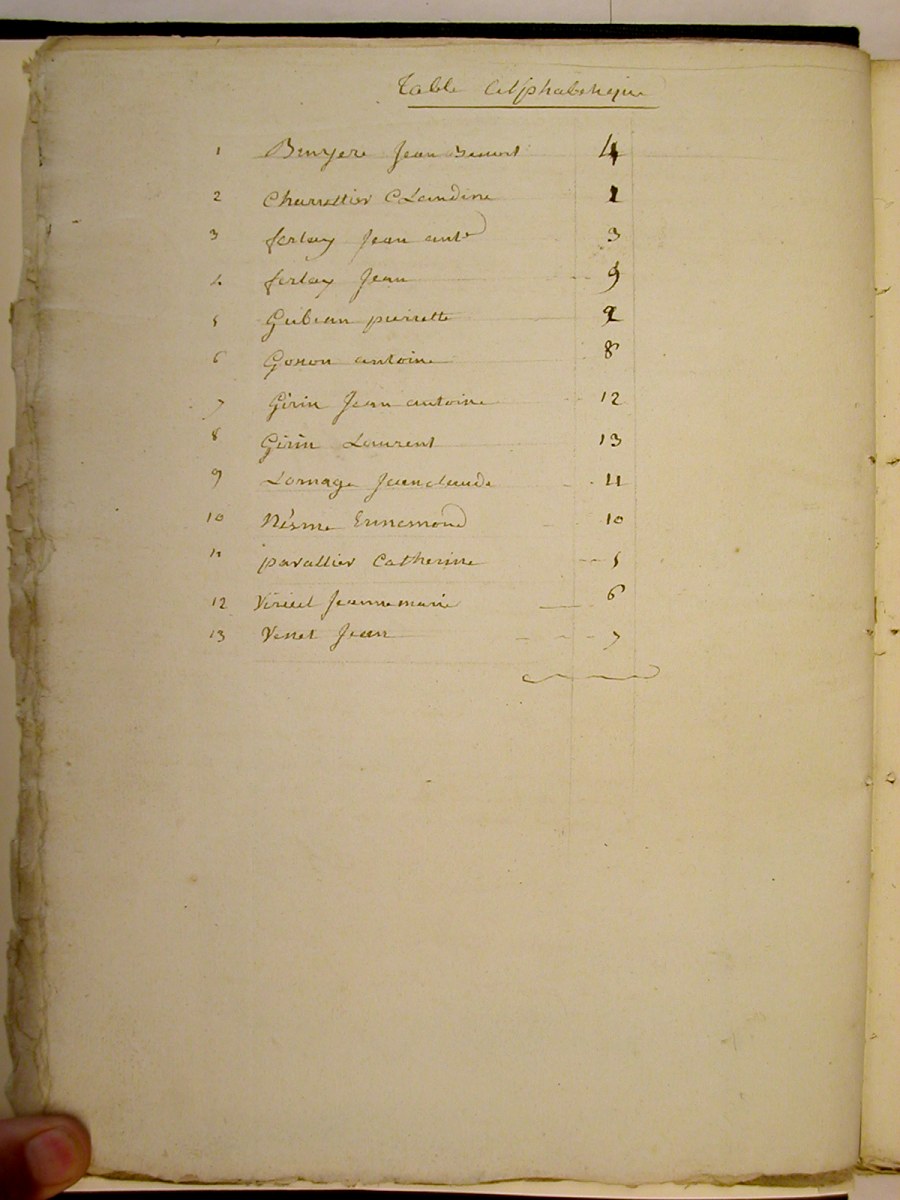 Table Alphabétique
1 Bruyere Jean Benoit 4
2 Charrettier Claudine 1
3 ferlay Jean ant.e 3
4 ferlay Jean 9
5 Gubian pierrette 2
6 Gonon antoine 8
7 Girin Jean antoine 12
8 Girin Laurent 13
9 Lornage Jean claude 11
10 Nésme Ennemond 10
11 pavallier Catherine 5
12 Jeanne marie 6
13 Venet Jean 7